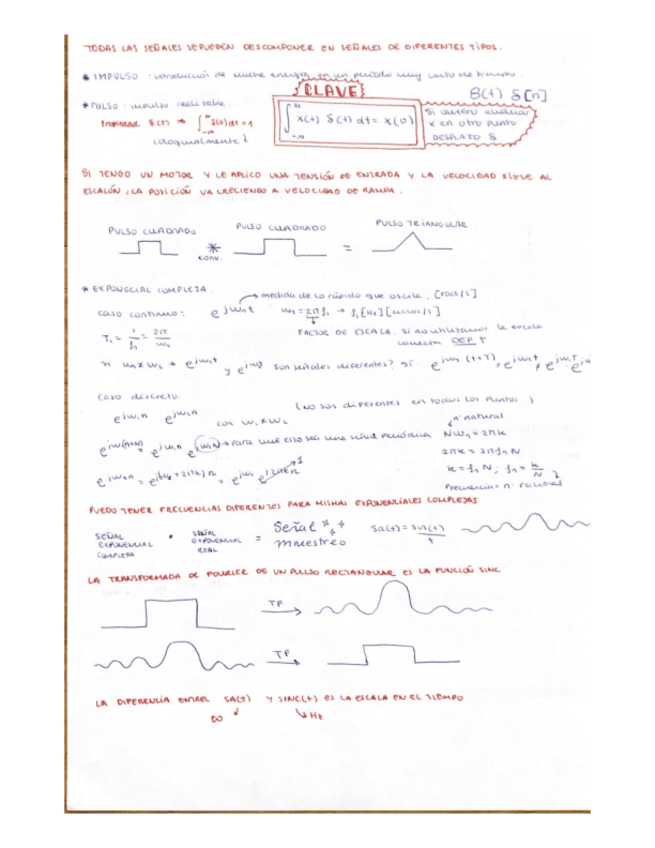 TODAS LAS SEÑALES SE PUEDEN DESCOMPONER EN SEÑALES DE DIFERENTES TIPOS.
* IMPULSO : introducción de mucha energía en un periodo muy corto de tiempo.
¡CLAVE!
δ(t) δ[n]
* PULSO : impulso realizable.
Propiedad δ(t) ⇒ ∫_{-∞}^{∞} δ(t)dt = 1
coloquialmente
∫_{-∞}^{∞} x(t) δ(t) dt = x(0)
Si quiero evaluar
x en otro punto
DESPLAZO δ
SI TENGO UN MOTOR Y LE APLICO UNA TENSIÓN DE ENTRADA Y LA VELOCIDAD SIGUE AL
ESCALÓN, LA POSICIÓN VA CRECIENDO A VELOCIDAD DE RAMPA.
PULSO CUADRADO * PULSO CUADRADO = PULSO TRIANGULAR
CONV.
* EXPONECIAL COMPLEJA.
medida de lo rápido que oscila. [rad/s]
caso continuo: e^{jω₁t} ω₁ = 2πf₁ → f₁[Hz][ciclos/s]
T₁ = 1/f₁ = 2π/ω₁
FACTOR DE ESCALA. si no utilizamos la escala
si ω₁ ≠ ω₂ → e^{jω₁t} y son señales diferentes? sí. e^{jω₁(t+T)} = e^{jω₁t}
caso discreto.
e^{jω₁n} e^{jω₂n} con ω₁ ≠ ω₂ (No son diferentes en todos los puntos.)
n· natural
e^{jω₁(n+N)} = e^{jω₁n} e^{jω₁N} → para que eso sea una señal periódica Nω₁ = 2πk
2πk = 2πf₁N
k = f₁N ; f₁ = k/N
Frecuencia = n· racional
PUEDO TENER FRECUENCIAS DIFERENTES PARA MISMAS EXPONENCIALES COMPLEJAS
SEÑAL EXPONENCIAL COMPLEJA • SEÑAL EXPONENCIAL REAL = Señal muestreo
Sa(t) = sin(t)/t
LA TRANSFORMADA DE FOURIER DE UN PULSO RECTANGULAR ES LA FUNCIÓN SINC
TF
TF
LA DIFERENCIA ENTRE SA(t) Y SINC(t) ES LA ESCALA EN EL TIEMPO
ω Hz